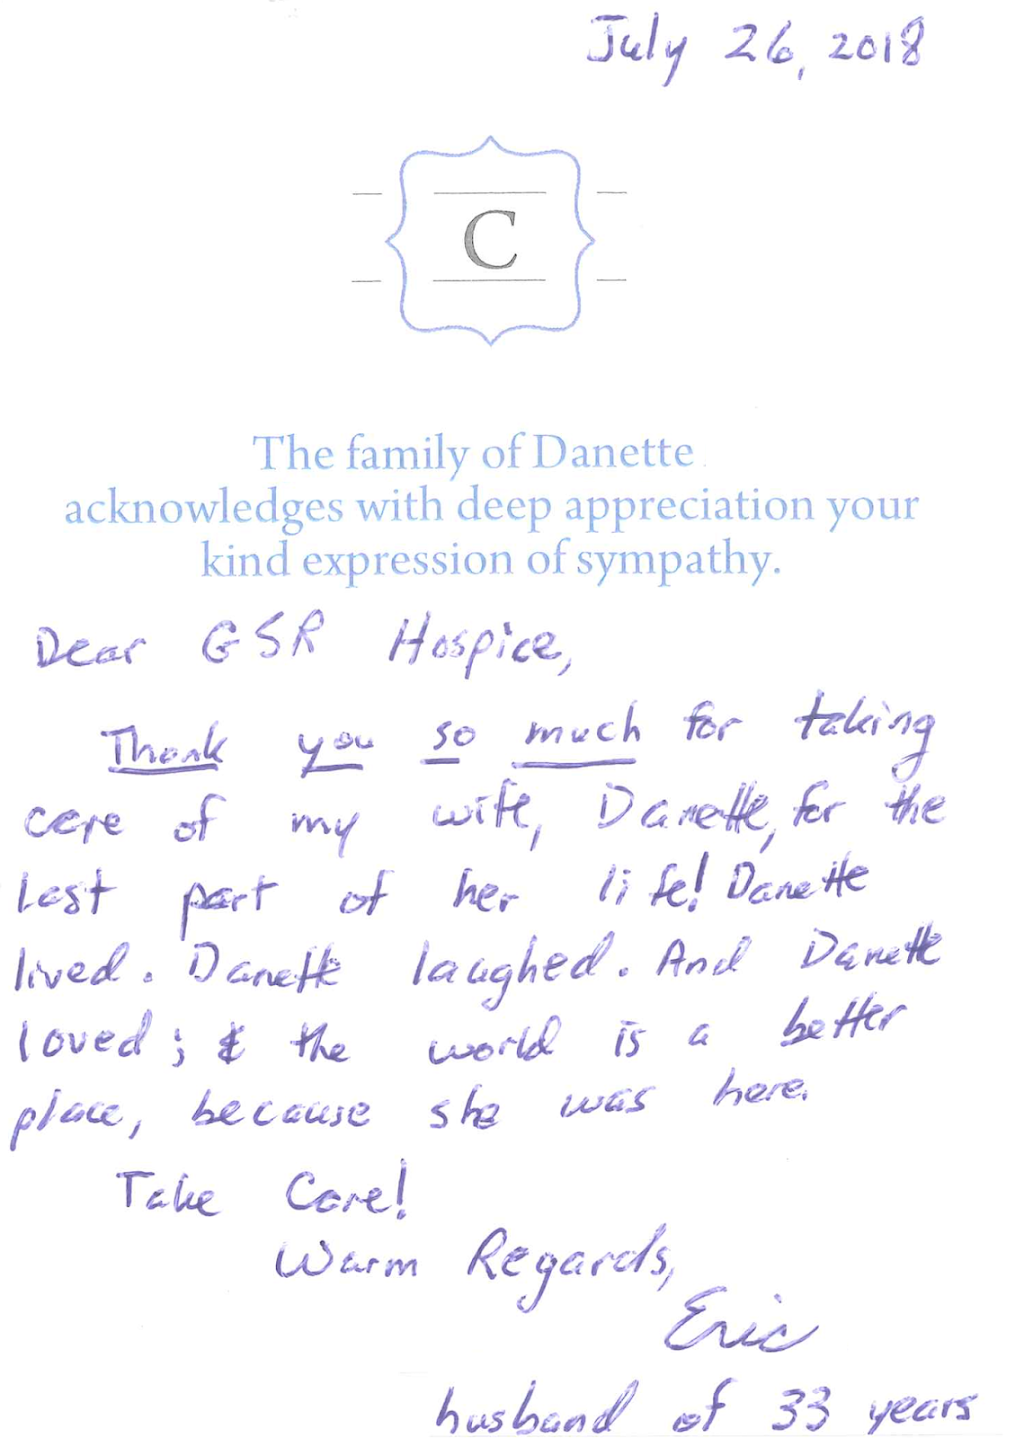 July 26, 2018
C
The family of Danette
acknowledges with deep appreciation your
kind expression of sympathy.
Dear GSR Hospice,
Thank you so much for taking
care of my wife, Danette, for the
last part of her life! Danette
lived. Danette laughed. And Danette
loved; & the world is a better
place, because she was here.
Take Care!
Warm Regards,
Eric
husband of 33 years